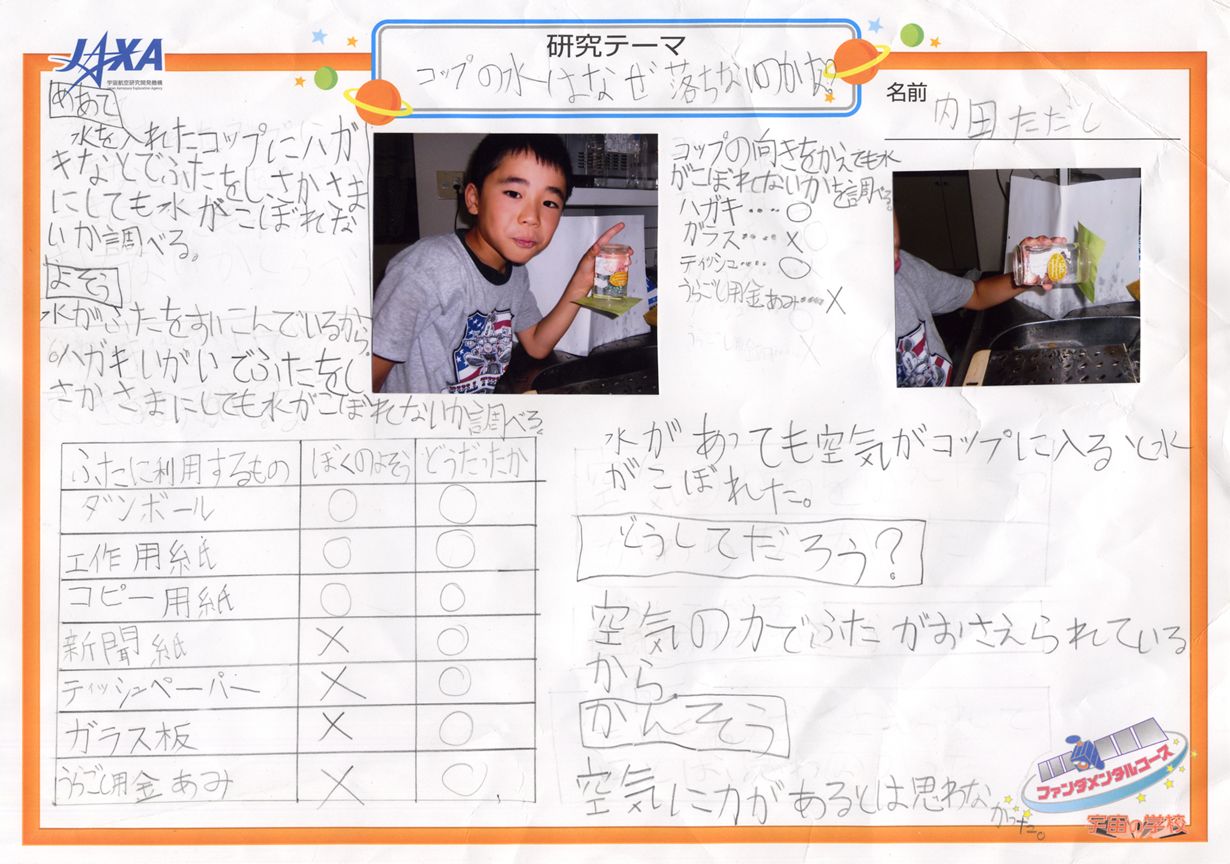 JAXA
宇宙航空研究開発機構
Japan Aerospace Exploration Agency
研究テーマ
コップの水はなぜ落ちないのかな?
名前 内田ただし
めあて
水を入れたコップにハガ
キなどでふたをし、さかさま
にしても水がこぼれな
いか調べる。
よそう
水がふたをすいこんでいるから。
ハガキいがいでふたをし
さかさまにしても水がこぼれないか調べる。
コップの向きをかえても水
がこぼれないかを調べる。
ハガキ・・・・○
ガラス・・・・×
ティッシュ・・・・○
うらごし用金あみ・・・・×
ふたに利用するもの ぼくのよそう どうだったか
ダンボール ○ ○
工作用紙 ○ ○
コピー用紙 ○ ○
新聞紙 × ○
ティッシュペーパー × ○
ガラス板 × ○
うらごし用金あみ × ○
水があっても空気がコップに入ると水
がこぼれた。
どうしてだろう?
空気の力でふたがおさえられている
から。
かんそう
空気に力があるとは思わな
かった。
ファンダメンタルコース
宇宙の学校